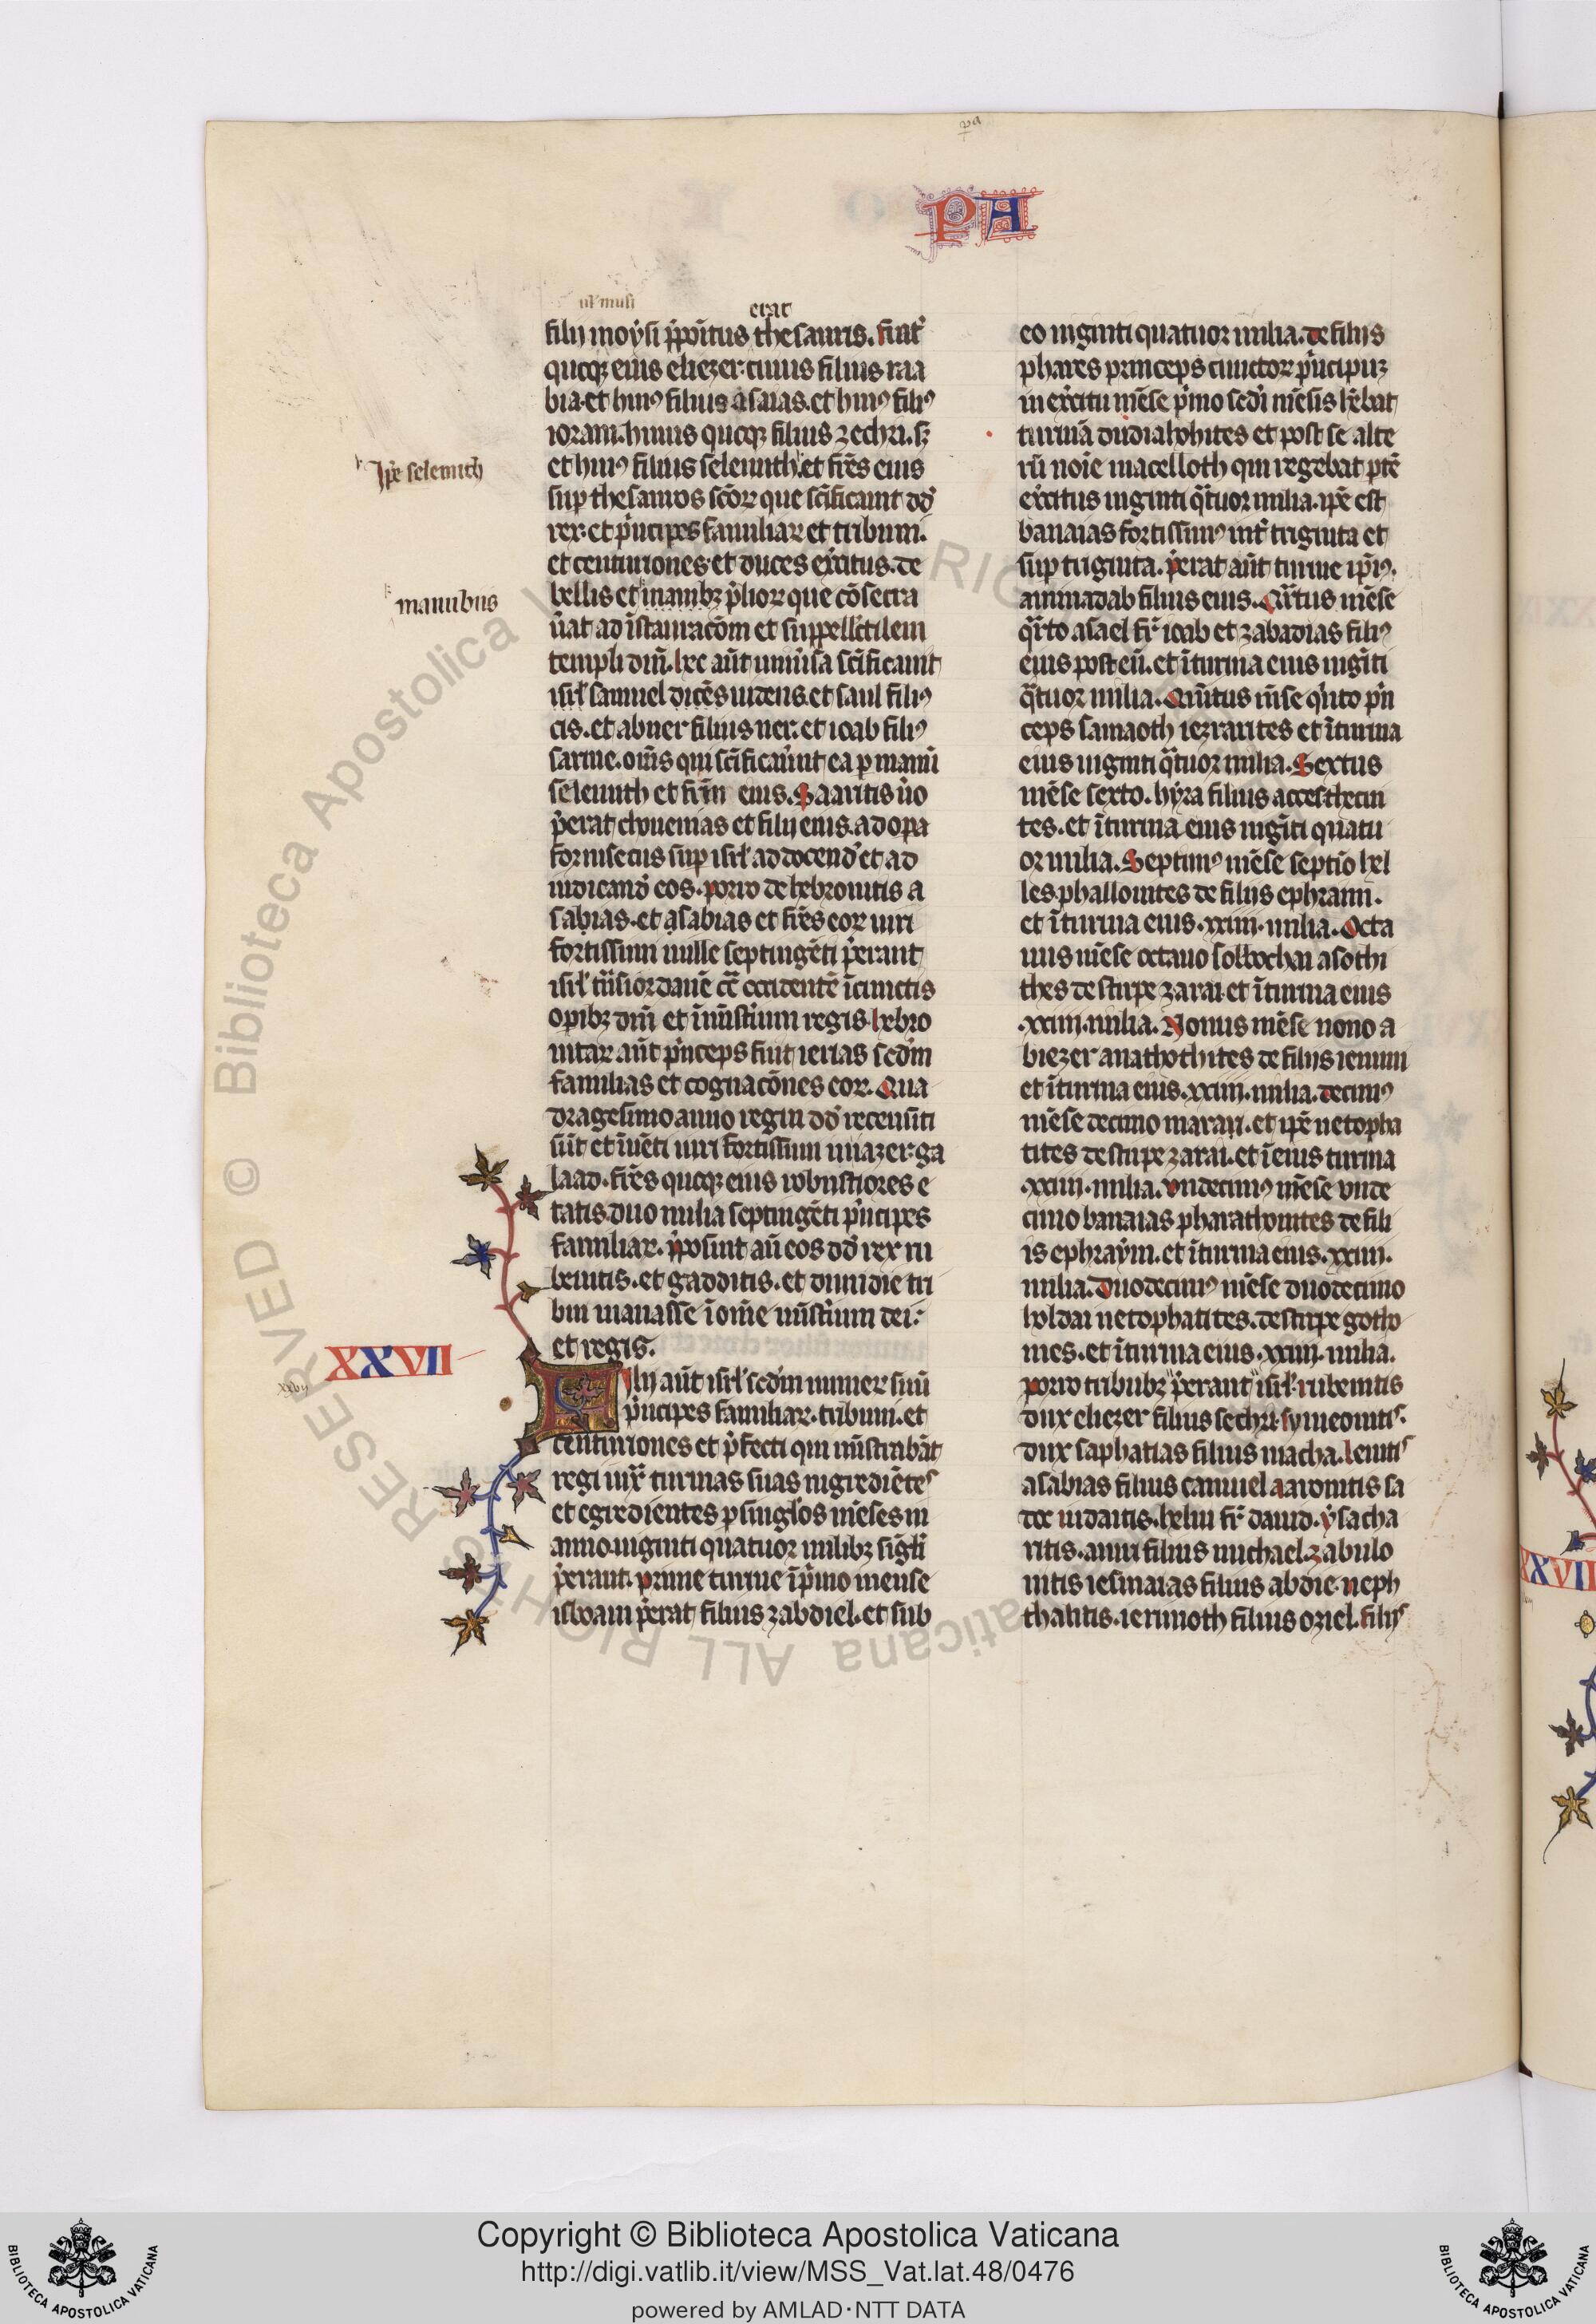 pa
PA
ul' musi
erat
filii moysi p̄poitus thesauris. frat̄
quoq; eius eliezer. cuius filius raa
bia. et hui9 filius asaias. et hui9 fili9
ioram. huius quoq; filius zechri. s;
et hui9 filius selemith. et fr̄es eius
Ip̄e selemith
sup thesauros sc̄oꝝ que sc̄ificauit dd̄
rex. et p̄ncipes familiaꝝ et tribuni.
et centuriones. et duces ex̄citus. de
bellis et manib; p̄lioꝝ que cōsecra
manubus
ūat ad īstauracōm et suppellc̄tilem
templi dn̄i. hec aūt uniūsa sc̄ificauit
isrl' samuel dicēs uidens. et saul fili9
cis. et abner filius ner. et ioab fili9
saruie. om̄s qui sc̄ificauūt ea p manū
selemith et fr̄m eius. Saaritis ūo
p̄erat chonenias et filii eius. ad opa
forinsecus sup isrl' ad docend̄ et ad
iudicand̄ eos. porro de hebronitis a
sabias. et asabias et fr̄es eoꝝ uiri
fortissimi mille septingēti p̄erant
isrl' tn̄siordanē cō̄ occidentē ī cunctis
opib; dn̄i et ī mīst̄ium regis. hebro
nitaꝝ aūt p̄nceps fuit ierias scd̄m
familias et cognacōnes eoꝝ. Qua
dragesimo anno regni dd̄ recensiti
sūt et īuēti uiri fortissimi ī iazer ga
laad. fr̄es quoq; eius robustiores e
tatis. duo milia septingēti p̄ncipes
familiaꝝ. p̄posuit aū eos dd̄ rex ru
benitis. et gadditis. et dimidie tri
bui manasse ī om̄e mīst̄ium dei.
et regis.
XXVII
xxvij
Filii aūt isrl' scd̄m numeꝝ suū
p̄ncipes familiaꝝ. tribuni. et
centuriones et p̄fecti qui mīstrabāt
regi iux̄ turmas suas ingrediētes
et egredientes p singlos mēses in
anno. uiginti quatuor milib; sigl̄i
p̄erant. prime turme ī p̄mo mense
isboam p̄erat filius zabdiel. et sub
eo uiginti quatuor milia. de filiis
phares princeps cunctoꝝ p̄ncipū
in ex̄citu mēse p̄mo. scd̄i mēsis h̄ebat
turmā dudi ahohites et post se alte
rū noīe macelloth qui regebat ptē
ex̄citus uiginti q̄tuor milia. ip̄e est
banaias fortissim9 int̄ triginta et
sup triginta. p̄erat aūt turme ip̄i9.
aminadab filius eius. Qr̄tus mēse
qr̄to asael fr̄ ioab et zabadias fili9
eius post eū. et ī turma eius uigīti
q̄tuor milia. Qūitus m̄se q̄nto p̄n
ceps samaoth iezrarites et ī turma
eius uiginti q̄tuor milia. Sextus
mēse sexto. hyra filius acces thecui
tes. et ī turma eius uigīti quatu
or milia. Septim9 mēse septīo hel
les. phallonites de filiis ephraim.
et ī turma eius .xxiiii. milia. Octa
uus mēse octauo sobbochai asothi
thes de stirpe zarai. et ī turma eius
.xxiiii. milia. Nonus mēse nono a
biezer anathothites de filiis iemini
et ī turma eius .xxiiii. milia. decim9
mēse decimo marai. et ip̄e netopha
tites de stirpe zarai. et ī eius turma
.xxiiii. milia. vndecim9 mēse vnde
cimo banaias pharathonites de fili
is ephraym. et ī turma eius .xxiiii.
milia. Duodecim9 mēse duodecimo
holdai netophatites. de stirpe gotho
niel. et ī turma eius .xxiiii. milia.
porro tribub; p̄erant isrl'. rubenitis
dux eliezer filius sechri. symeonitis.
dux saphatias filius macha. leuitis
asabias filius camuel aaronitis sa
doc iudaitis. heliu fr̄ dauid. ysacha
ritis. amri filius michael. zabulo
nitis iesmaias filius abdie. neph
thalitis. ierimoth filius oziel. filiis
XXVII
Copyright © Biblioteca Apostolica Vaticana
http://digi.vatlib.it/view/MSS_Vat.lat.48/0476
powered by AMLAD·NTT DATA
BIBLIOTECA APOSTOLICA VATICANA
BIBLIOTECA APOSTOLICA VATICANA